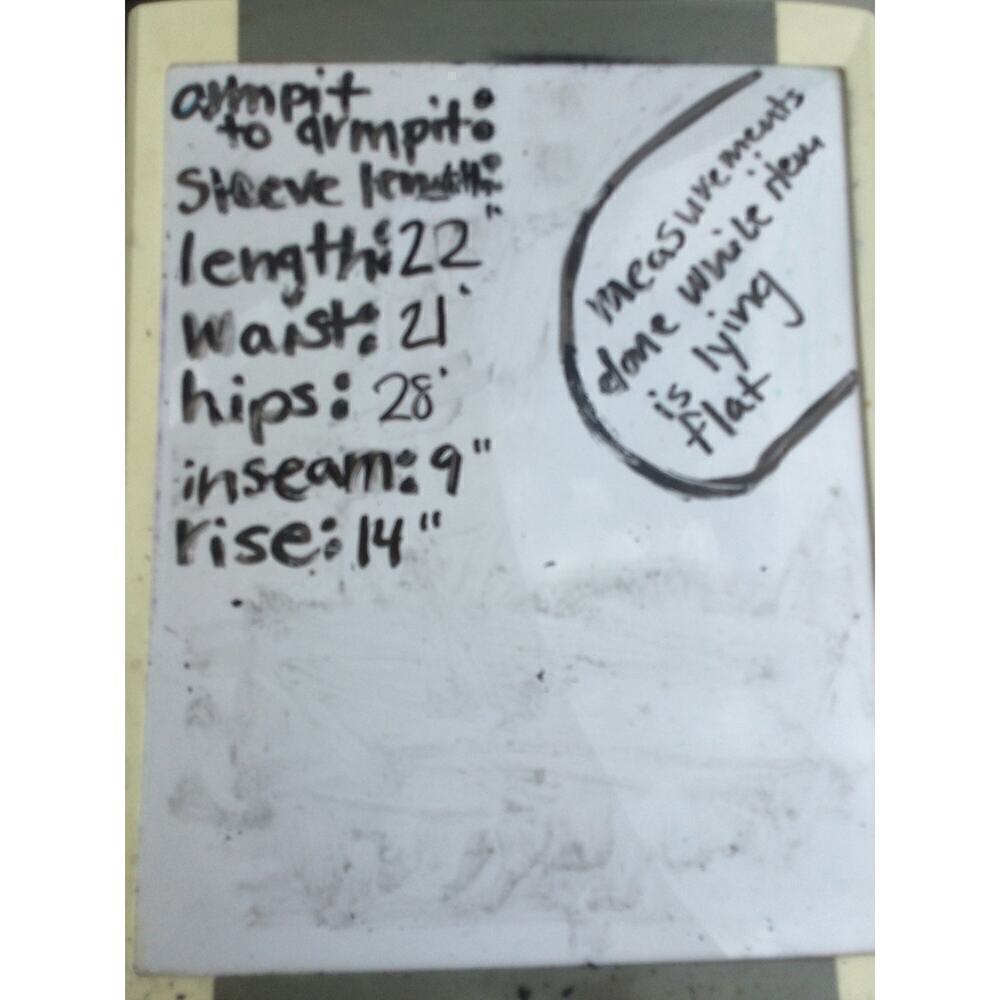 armpit
to armpit:
sleeve length:
length: 22"
waist: 21'
hips: 28'
inseam: 9"
rise: 14"
measurements
done while item
is lying
flat